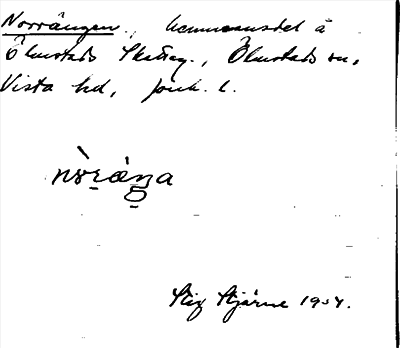 Norrängen, hemmansdel å
Ölmstads Skatteg., Ölmstads sn,
Vista hd, Jönk. l.
nòrǽŋa
Stig Stjärne 1934.